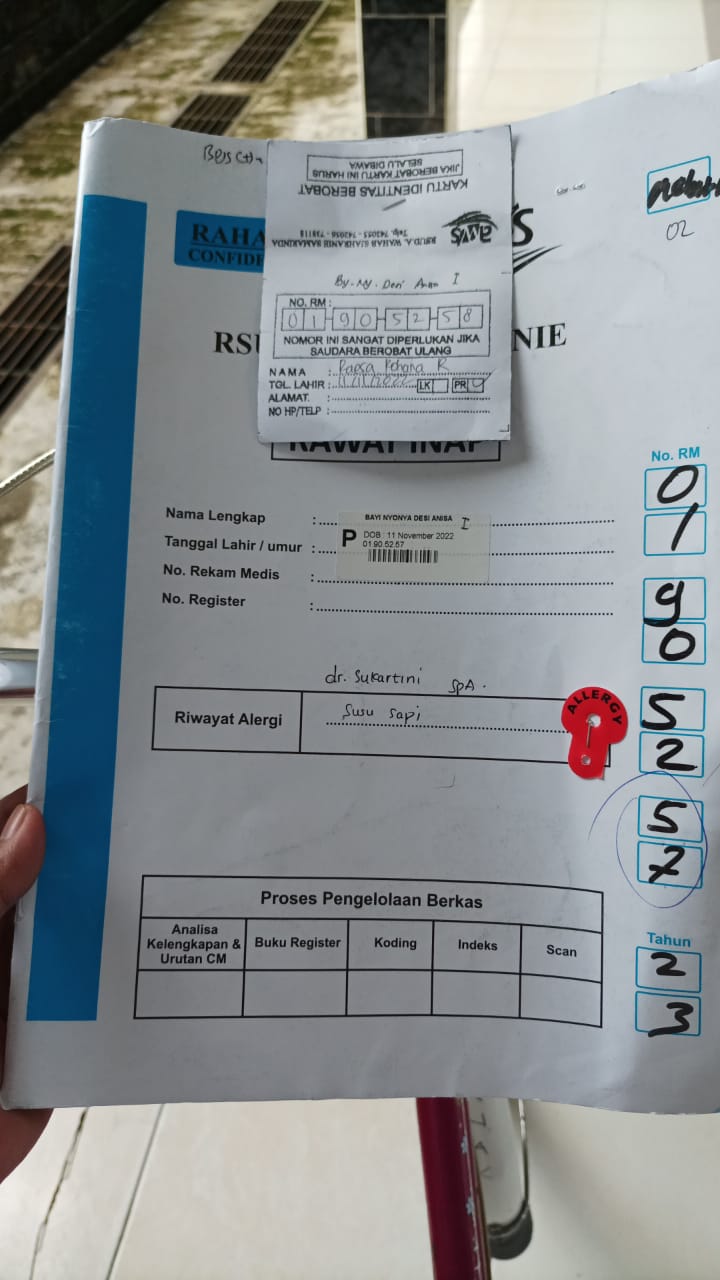 RAHA
CONFIDE
KARTU IDENTITAS BEROBAT
JIKA BEROBAT KARTU INI HARUS
SELALU DIBAWA
aws
RSUD. A. WAHAB SJAHRANIE SAMARINDA
By. Ny. Desi Anisa I
NO. RM :
01 90 52 58
NOMOR INI SANGAT DIPERLUKAN JIKA
SAUDARA BEROBAT ULANG
NAMA :
TGL. LAHIR : LK PR
ALAMAT. :
NO HP/TELP :
S
RSU
NIE
RAWAT INAP
02
Nama Lengkap :
Tanggal Lahir / umur :
No. Rekam Medis :
No. Register :
BAYI NYONYA DESI ANISA I
P DOB : 11 November 2022
01.90.52.57
dr. Sukartini SpA.
Riwayat Alergi
Susu Sapi
ALLERGY
No. RM
0
1
9
0
5
2
5
7
Tahun
2
3
Proses Pengelolaan Berkas
Analisa
Kelengkapan &
Urutan CM
Buku Register
Koding
Indeks
Scan